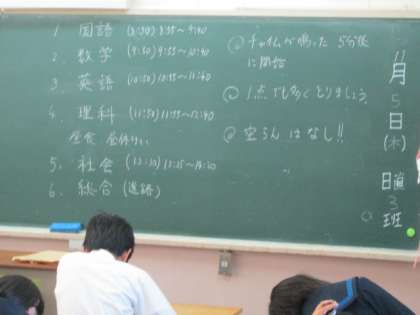 1. 国語 (8:50) 8:55〜9:40
2. 数学 (9:50) 9:55〜10:40
3. 英語 (10:50) 10:55〜11:40
4. 理科 (11:50) 11:55〜12:40
昼食 昼休けい
5. 社会 13:35〜14:20
6. 総合 (進路)
チャイムが鳴った 5分後
に開始
1点でも多くとりましょう。
空らんはなし!!
11月5日(木)
日直
3班